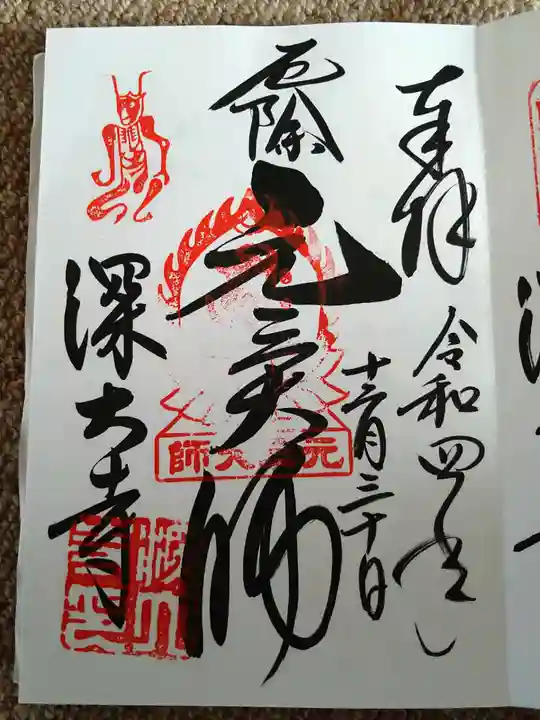 奉拝
令和四年
十二月三十日
厄除
元三大師
元三大師
深大寺